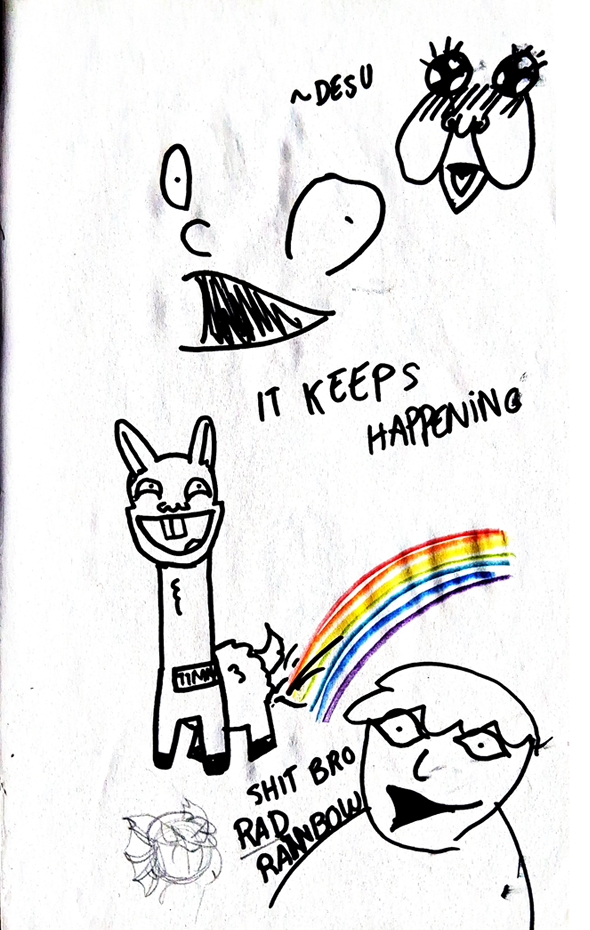 ~DESU
IT KEEPS
HAPPENING
SHIT BRO
RAD
RAINBOW